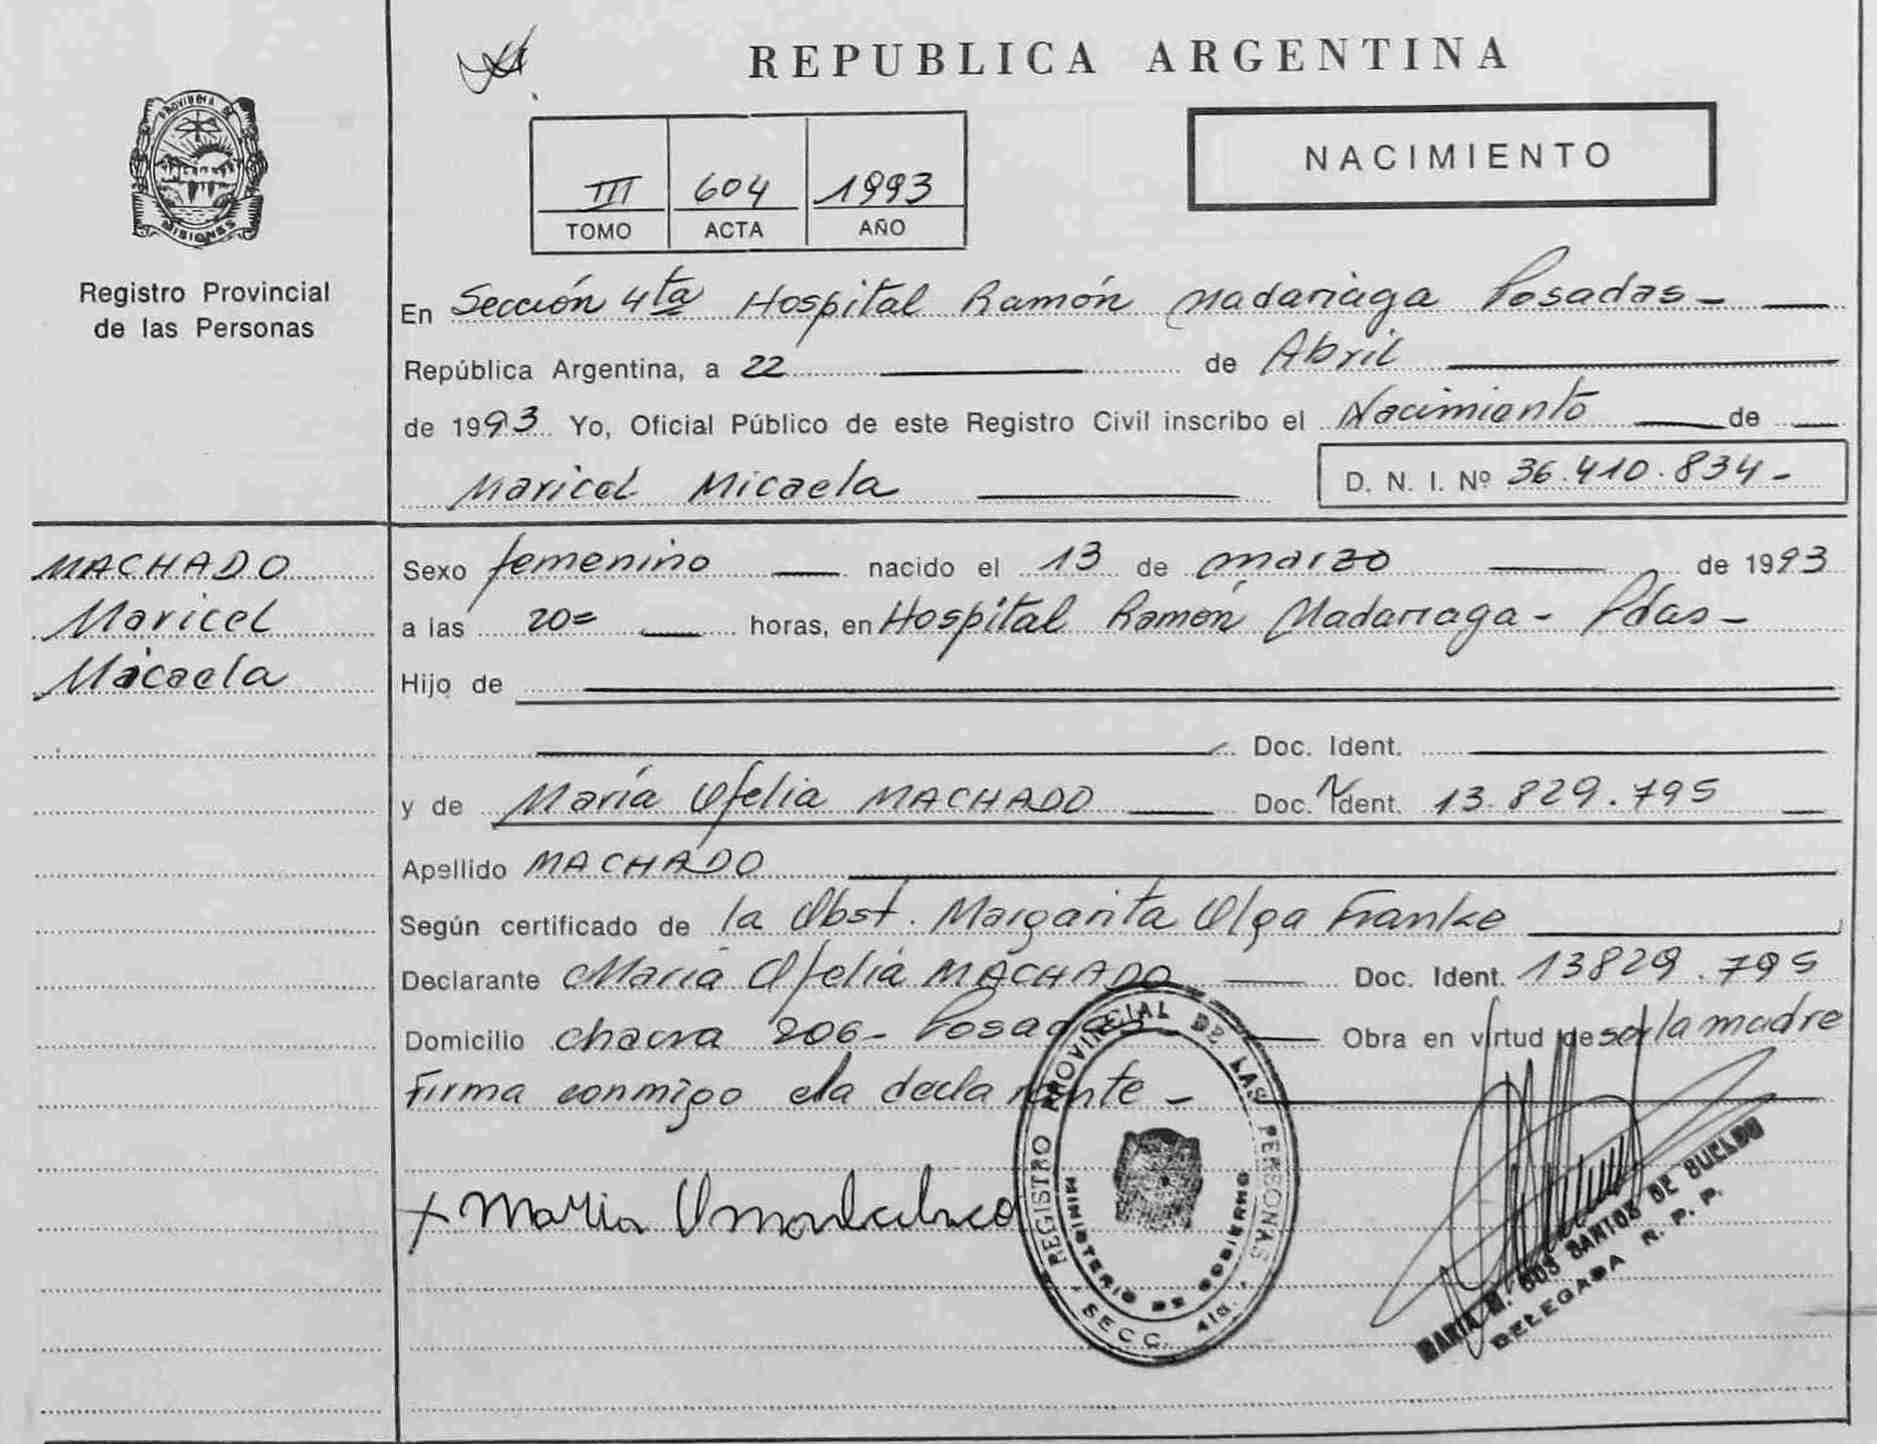 REPUBLICA ARGENTINA
NACIMIENTO
III 604 1993
TOMO ACTA AÑO
PROVINCIA DE
MISIONES
Registro Provincial
de las Personas
En Sección 4ta Hospital Ramón Madariaga Posadas -
República Argentina, a 22 de Abril
de 1993 Yo, Oficial Público de este Registro Civil inscribo el Nacimiento de
Maricel Micaela D. N. I. Nº 36.410.834-
MACHADO
Maricel
Micaela
Sexo femenino nacido el 13 de marzo de 1993
a las 20= horas, en Hospital Ramón Madariaga - Pdas -
Hijo de
Doc. Ident.
y de María Ofelia MACHADO Doc. Ident. 13.829.795
Apellido MACHADO
Según certificado de la Obst. Margarita Olga Franke
Declarante María Ofelia MACHADO Doc. Ident. 13829.795
Domicilio chacra 206- Posadas Obra en virtud de ser la madre
Firma conmigo la declarante -
+ Maria O
REGISTRO PROVINCIAL DE LAS PERSONAS
MINISTERIO DE GOBIERNO
SECC. 4ta.
MARIA M. DOS SANTOS DE BUELDU
DELEGADA R. P. P.